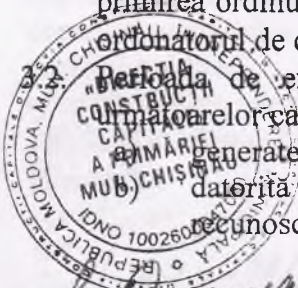 primirea ordinu
ordonatorul de c
3.2. Perioada de e
următoarelor ca
a) generate
b) datorită
recunosc
"DIRECȚIA
CONSTRUCȚII
CAPITALE
A PRIMĂRIEI
MUN. CHIȘINĂU
REPUBLICA MOLDOVA, MUN. CHIȘINĂU
IDNO 1002600